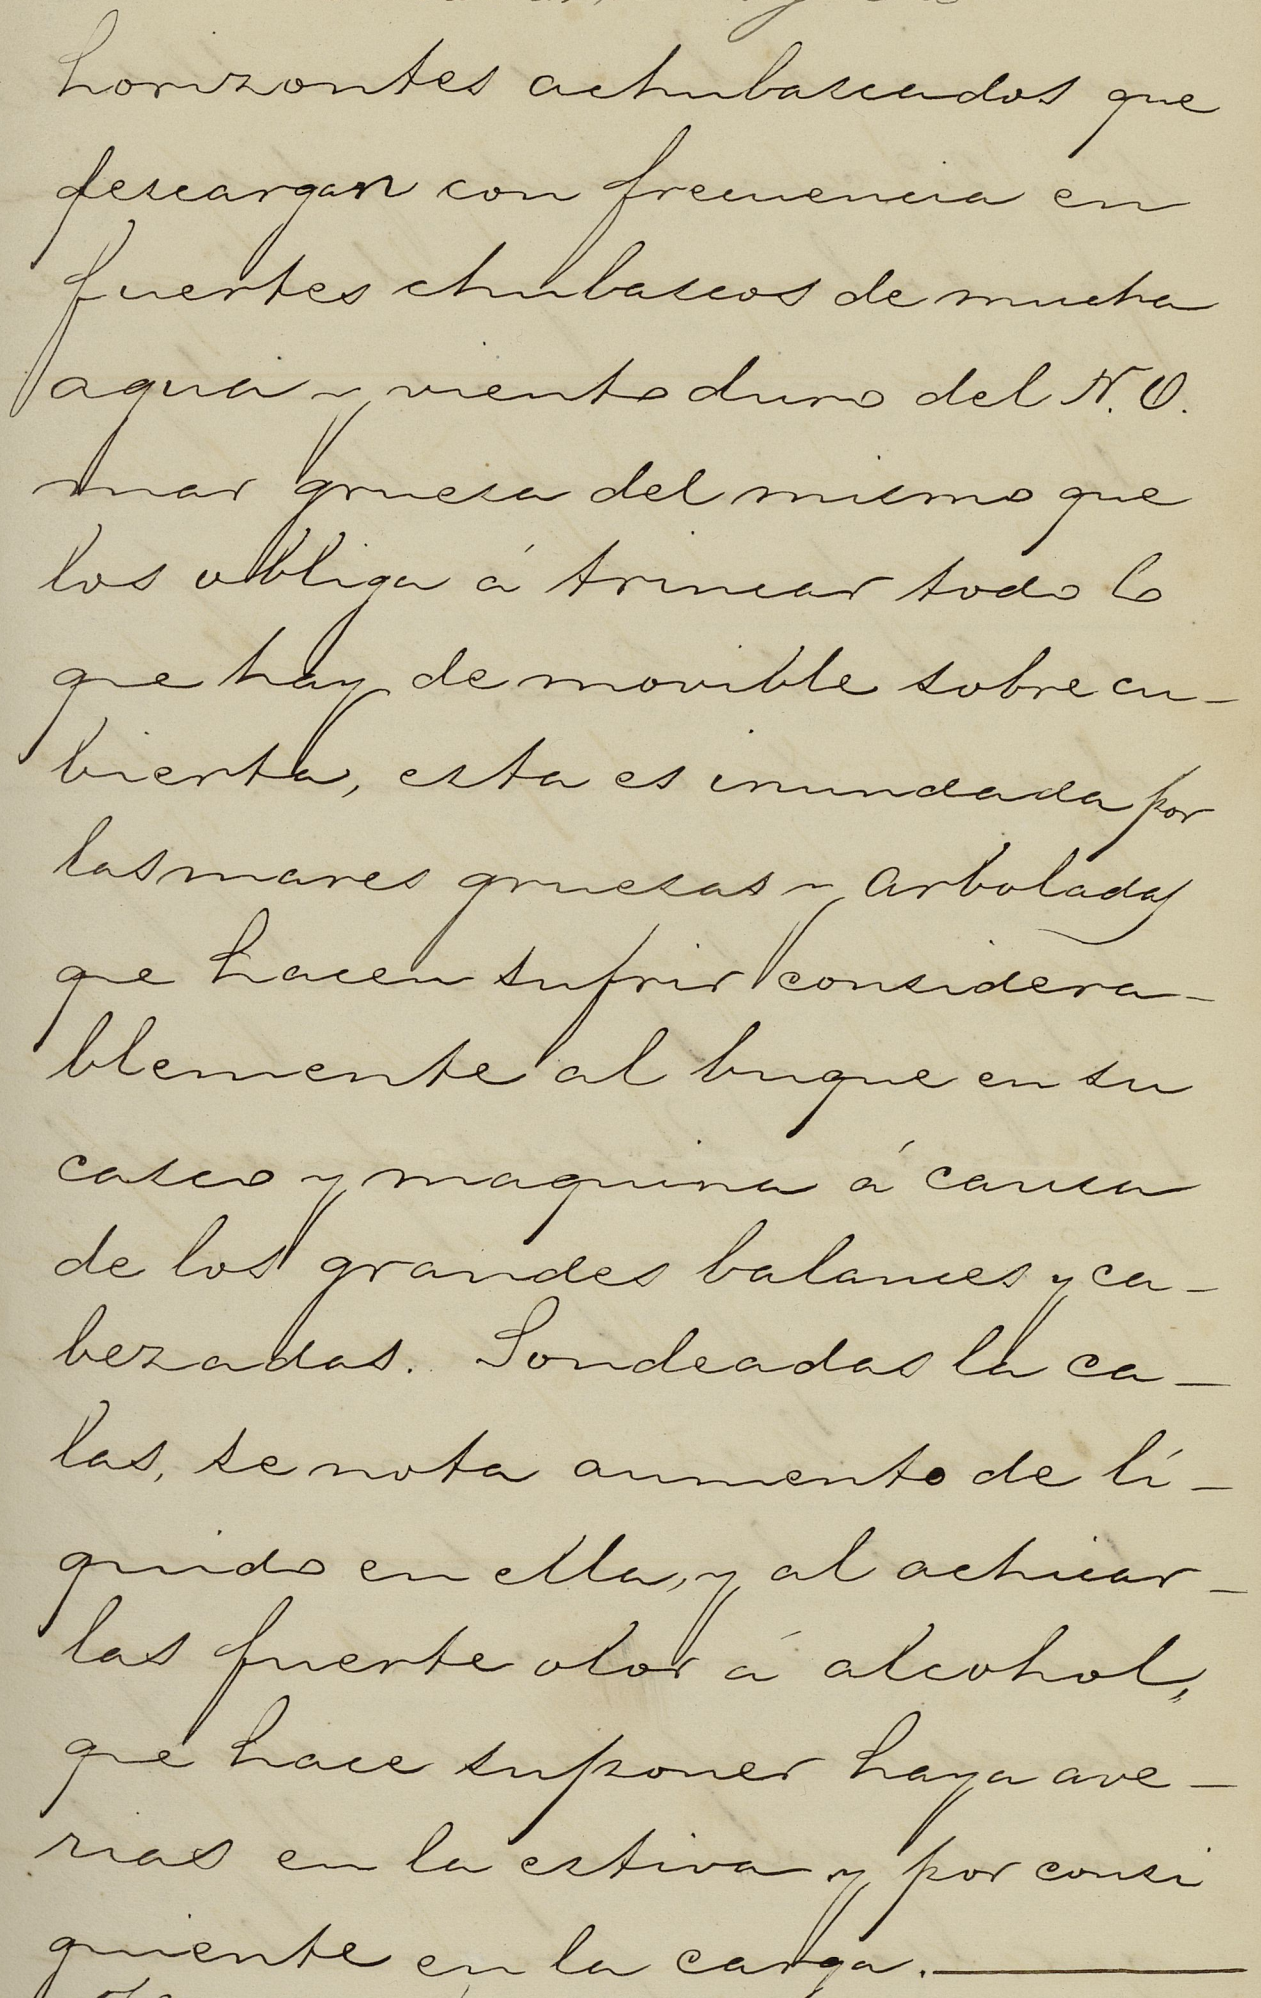 horizontes achubascados que
descargan con frecuencia en
fuertes chubascos de mucha
agua y viento duro del N.O.
mar gruesa del mismo que
los obliga á trincar todo lo
que hay de movible sobre cu-
bierta, esta es inundada por
las mares gruesas y arboladas
que hacen sufrir considera-
blemente al buque en su
casco y maquina á causa
de los grandes balances y ca-
bezadas. Sondeadas la ca-
las, se nota aumento de lí-
quido en ella, y al achicar-
las fuerte olor á alcohol,
que hace suponer haya ave-
rias en la estiva y por consi
guiente en la carga.